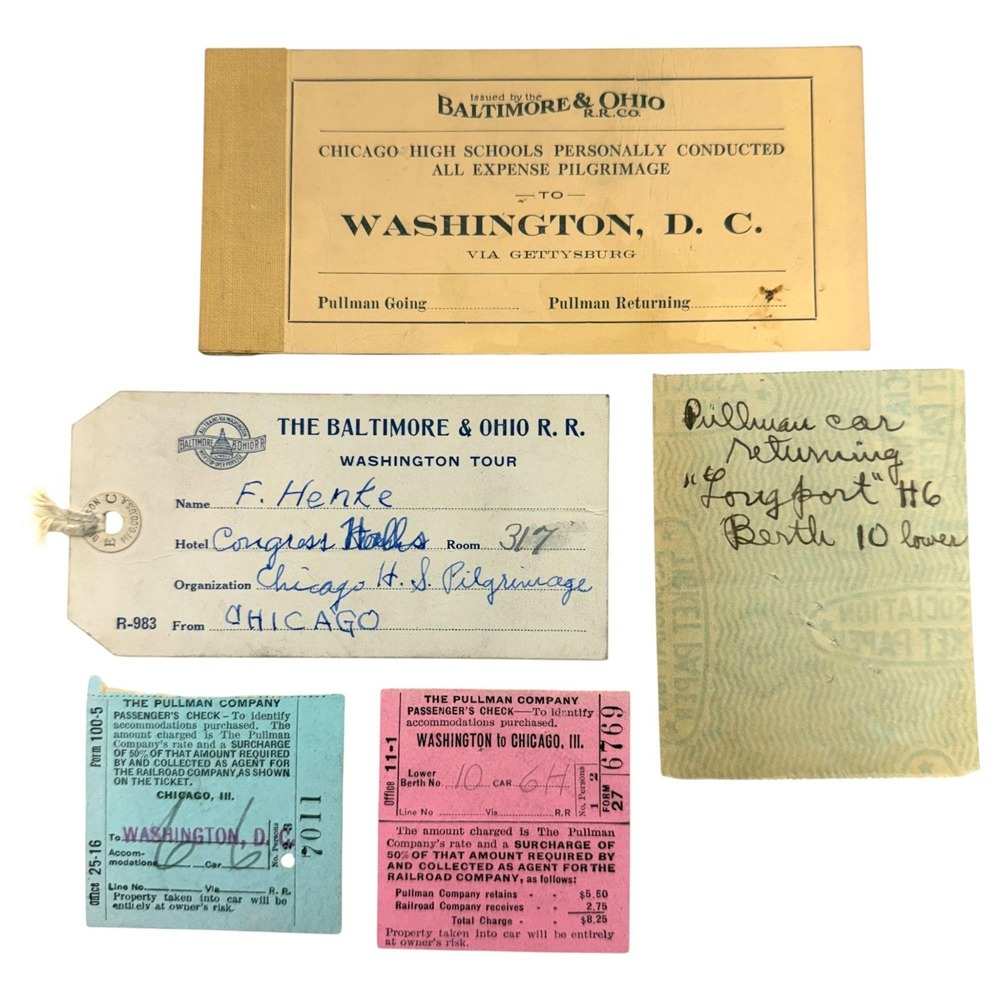 Issued by the
BALTIMORE & OHIO
R.R.CO.
CHICAGO HIGH SCHOOLS PERSONALLY CONDUCTED
ALL EXPENSE PILGRIMAGE
— TO —
WASHINGTON, D. C.
VIA GETTYSBURG
Pullman Going
Pullman Returning
BALTIMORE & OHIO R R
THE BALTIMORE & OHIO R. R.
WASHINGTON TOUR
Name F. Henke
Hotel Congress Halls Room 317
Organization Chicago H. S. Pilgrimage
R-983 From CHICAGO
Pullman car
returning
"Longport" H6
Berth 10 lower
THE PULLMAN COMPANY
PASSENGER'S CHECK – To identify
accommodations purchased. The
amount charged is The Pullman
Company's rate and a SURCHARGE
OF 50% OF THAT AMOUNT REQUIRED
BY AND COLLECTED AS AGENT FOR
THE RAILROAD COMPANY, AS SHOWN
ON THE TICKET.
CHICAGO, ILL.
To WASHINGTON, D. C.
Accom-
modations 6 Car 6
No. Persons
Line No. Via R. R.
Property taken into car will be
entirely at owner's risk.
Form 100-5
Office 25-16
7011
THE PULLMAN COMPANY
PASSENGER'S CHECK — To identify
accommodations purchased.
WASHINGTON to CHICAGO, ILL.
Lower
Berth No. 10 CAR 6H
Line No Via R.R
No. Persons
1 2
FORM
27
6769
Office 11-1
The amount charged is The Pullman
Company's rate and a SURCHARGE OF
50% OF THAT AMOUNT REQUIRED BY
AND COLLECTED AS AGENT FOR THE
RAILROAD COMPANY, as follows:
Pullman Company retains - - $5.50
Railroad Company receives - - 2.75
Total Charge - - $8.25
Property taken into car will be entirely
at owner's risk.